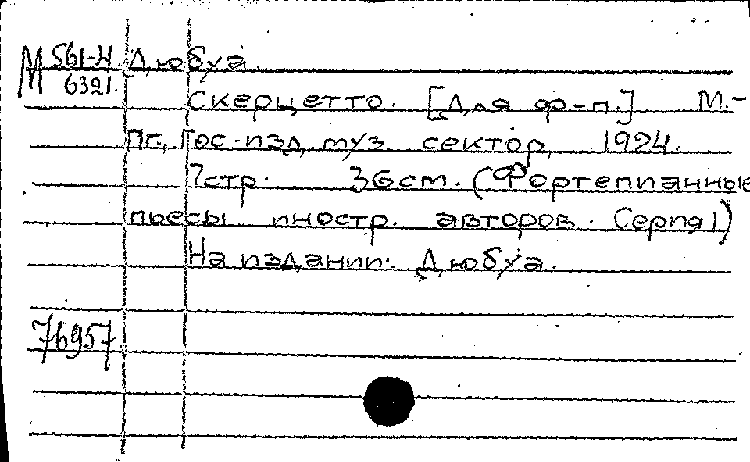 М 561-Н Дюбуа.
6321
Скерцетто. [Для ф-п.] М.-
Пг., Гос. изд., муз. сектор, 1924.
7стр. 36см. (Фортепианные
пьесы иностр. авторов. Серия 1)
На издании: Дюбуа.
76957